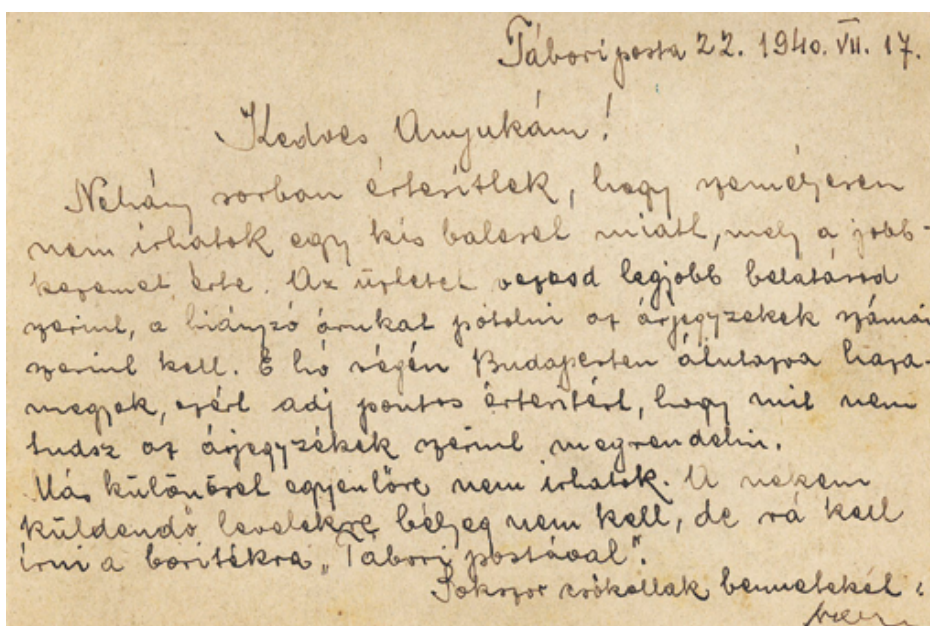 Tábori posta 22. 1940. VII. 17.
Kedves Anyukám!
Néhány sorban értesítlek, hogy személyesen
nem írhatok egy kis baleset miatt, mely a jobb-
kezemet érte. Az üzletet vezesd legjobb belátásod
szerint, a hiányzó árukat pótolni az árjegyzékek számai
szerint kell. E hó végén Budapesten átutazva haza-
megyek, ezért adj pontos értesítést, hogy mit nem
tudsz az árjegyzékek szerint megrendelni.
Más különöset egyenlőre nem írhatok. A nekem
küldendő levelekre bélyeg nem kell, de rá kell
írni a borítékra „Tábori postával".
Sokszor csókollak benneteket: